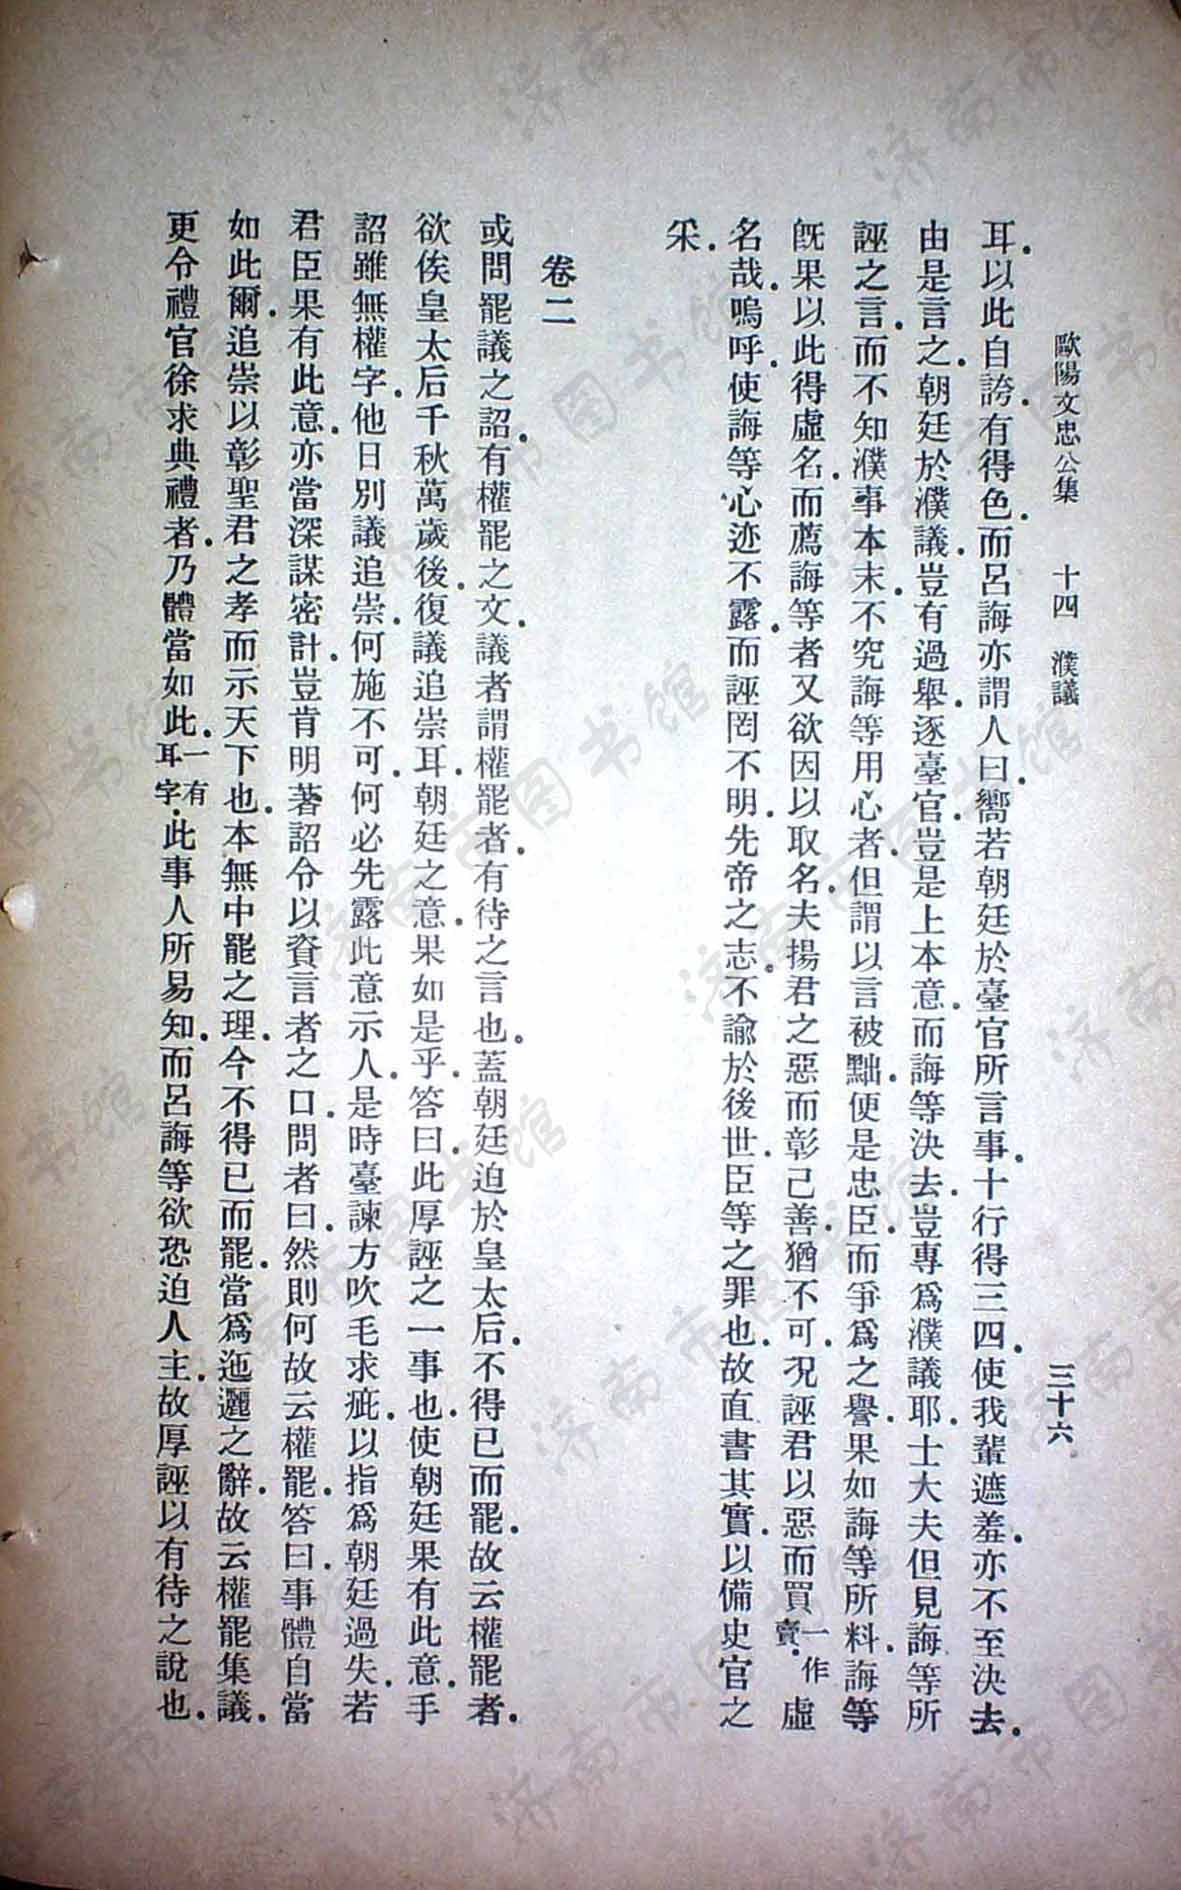 歐陽文忠公集　十四　濮議　三十六
耳.以此自誇.有得色.而呂誨亦謂人曰.嚮若朝廷於臺官所言事.十行得三四.使我輩遮羞.亦不至決去.
由是言之.朝廷於濮議.豈有過舉.逐臺官.豈是上本意.而誨等決去.豈專爲濮議耶.士大夫但見誨等所
誣之言.而不知濮事本末.不究誨等用心者.但謂以言被黜.便是忠臣.而爭爲之譽.果如誨等所料.誨等
既果以此得虛名.而薦誨等者又欲因以取名.夫揚君之惡而彰己善.猶不可.況誣君以惡而買一作賣.虛
名哉.嗚呼.使誨等心迹不露.而誣罔不明.先帝之志.不諭於後世.臣等之罪也.故直書其實.以備史官之
采.
卷二
或問罷議之詔.有權罷之文.議者謂權罷者.有待之言也.蓋朝廷迫於皇太后.不得已而罷.故云權罷者.
欲俟皇太后千秋萬歲後.復議追崇耳.朝廷之意.果如是乎.答曰.此厚誣之一事也.使朝廷果有此意.手
詔雖無權字.他日別議追崇.何施不可.何必先露此意示人.是時臺諫方吹毛求疵.以指爲朝廷過失.若
君臣果有此意.亦當深謀密計.豈肯明著詔令以資言者之口.問者曰.然則何故云權罷.答曰.事體自當
如此爾.追崇以彰聖君之孝而示天下也.本無中罷之理.今不得已而罷.當爲迤邐之辭.故云權罷集議.
更令禮官徐求典禮者.乃體當如此.一有耳字.此事人所易知.而呂誨等欲恐迫人主.故厚誣以有待之說也.